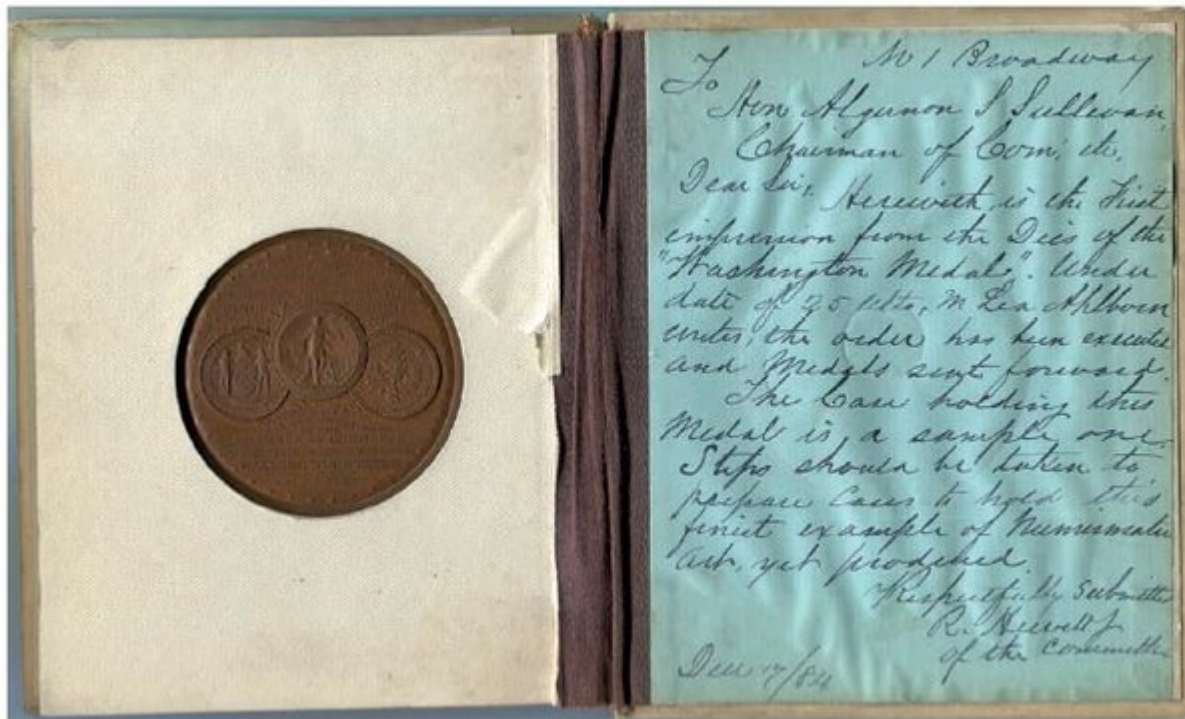 No 1 Broadway
To
Hon Algernon S Sullivan,
Chairman of Com. etc.
Dear Sir, Herewith is the First
impression from the Dies of the
"Washington Medal". Under
date of 25 ulto, M Lea Ahlborn
writes, the order has been executed
and Medals sent forward.
The Case holding this
Medal is a sample one.
Steps should be taken to
prepare Cases to hold this
finest example of Numismatic
art, yet produced.
Respectfully Submitted
R. Hewitt Jr
of the Committee
Dec 17/84